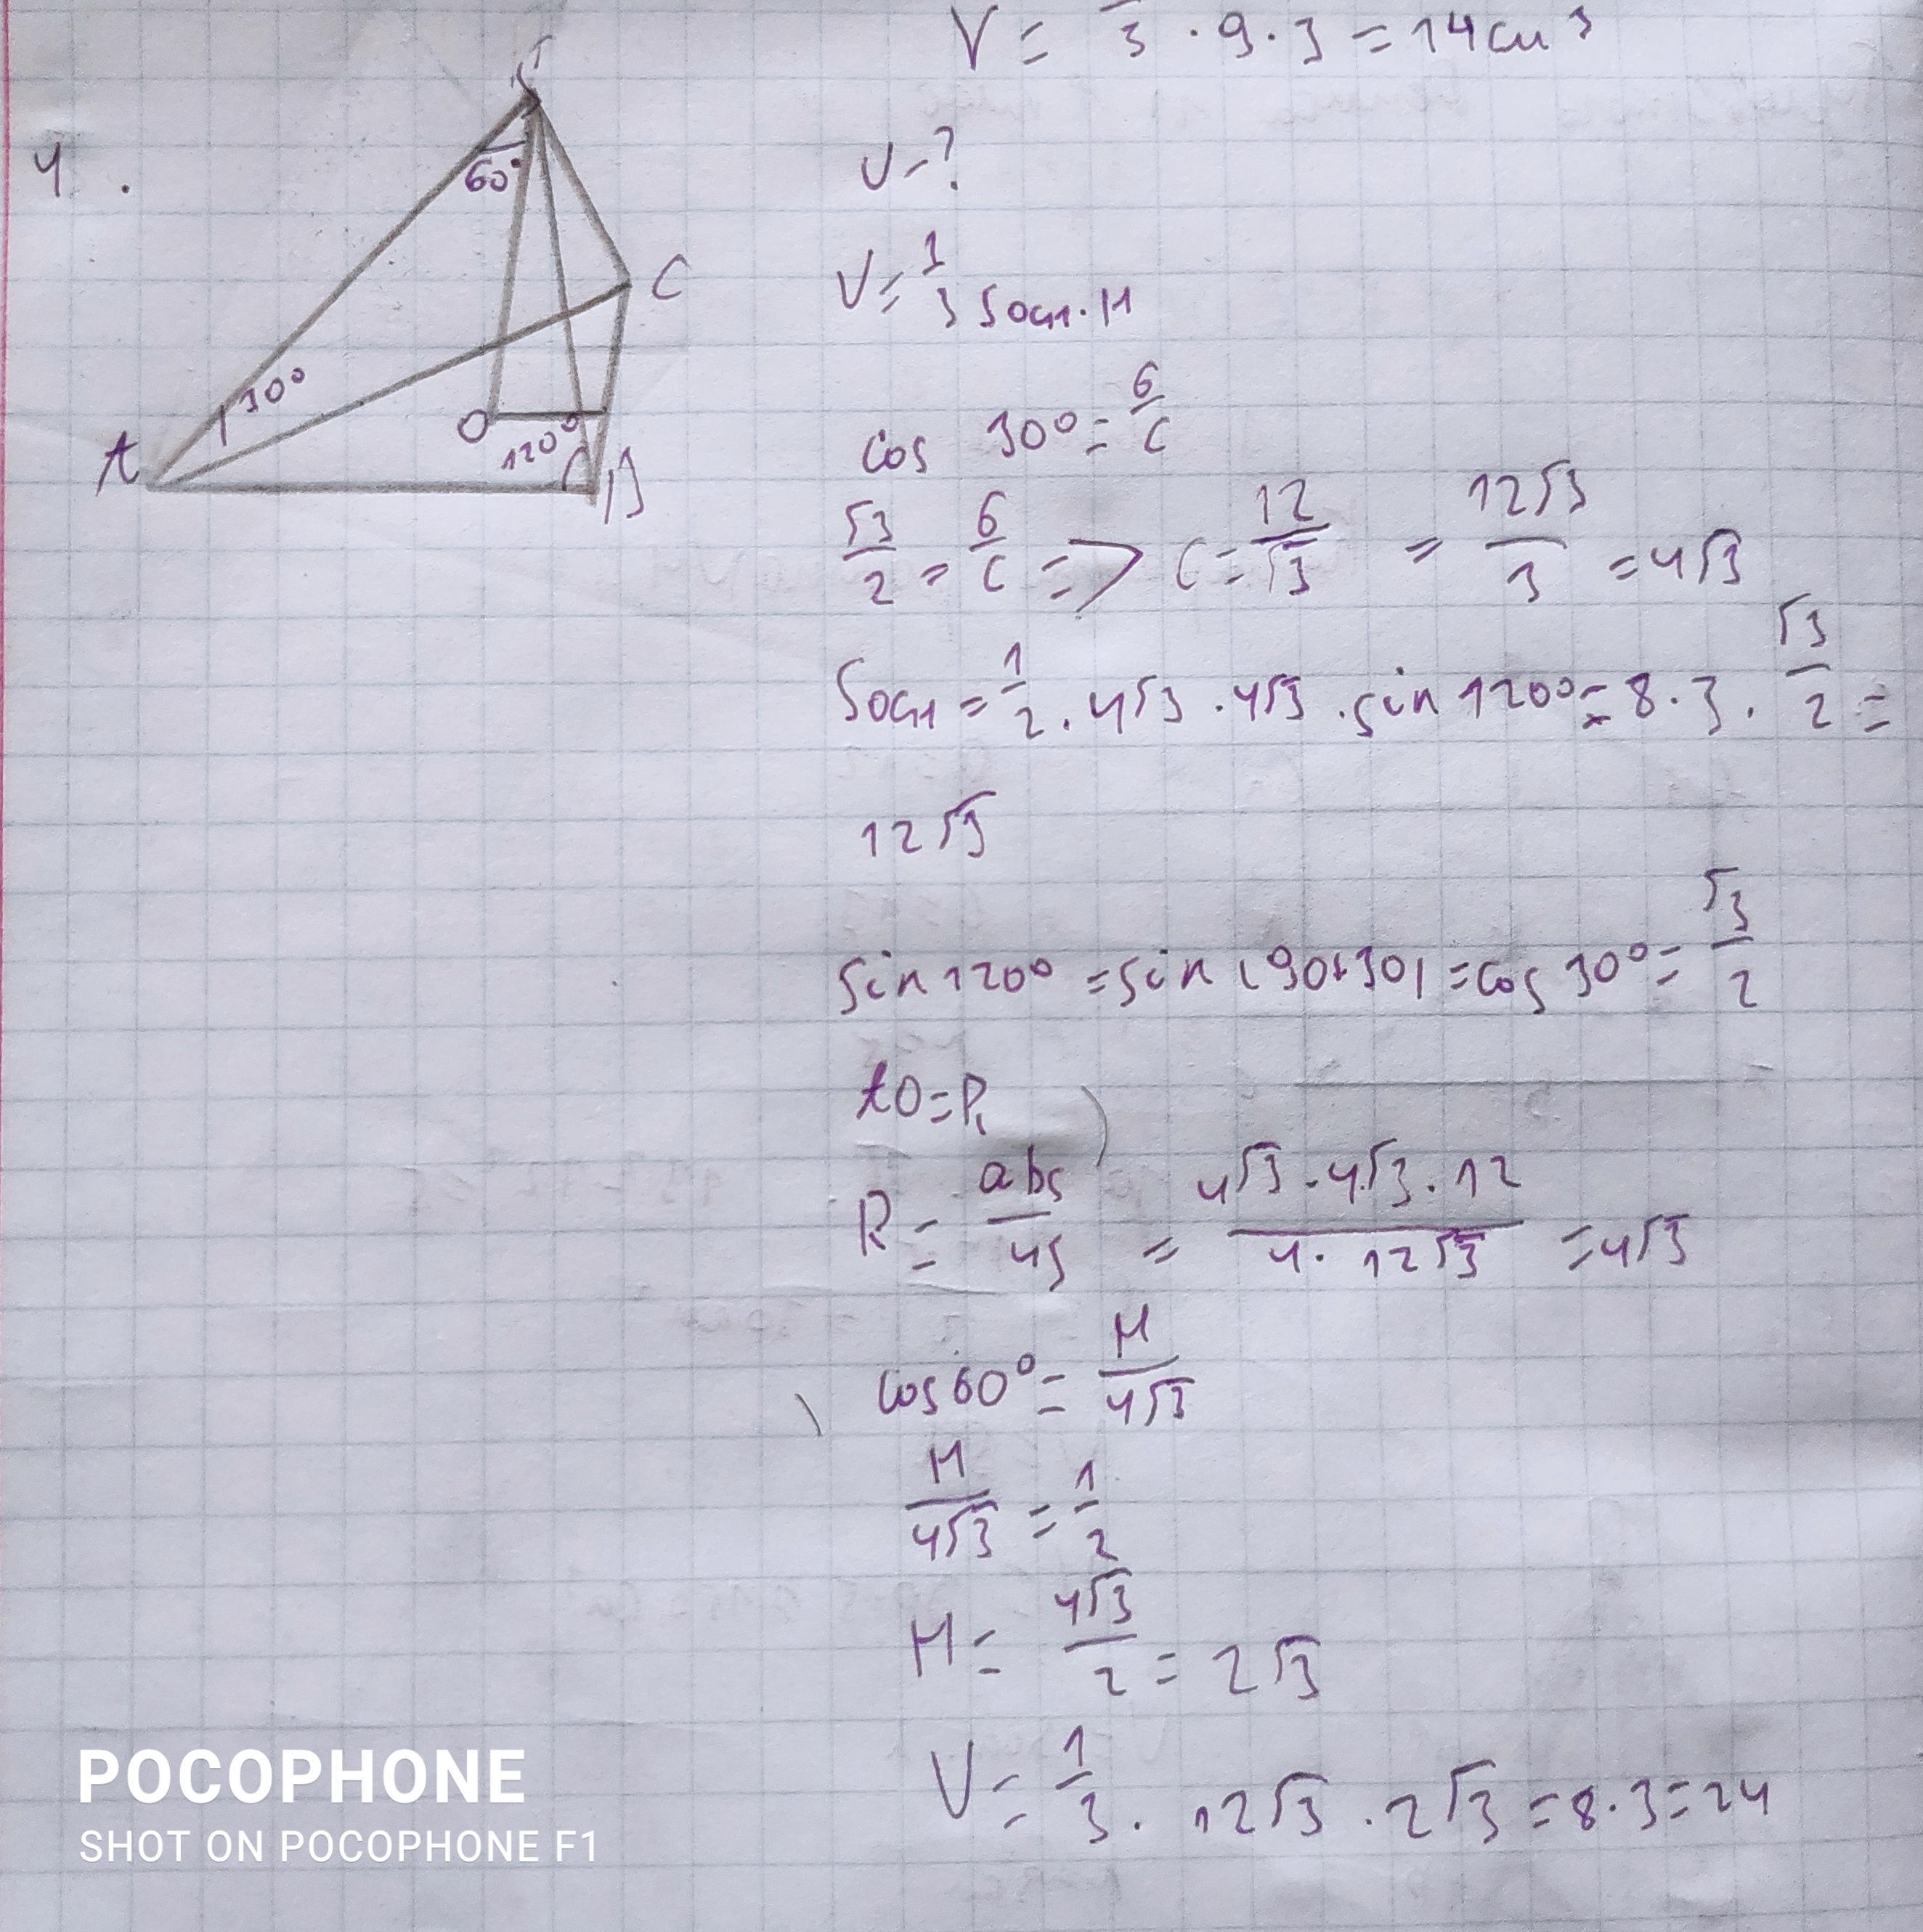 V = 3 · 9 · 3 = 14 см³
4 .
S
60°
C
30°
A
O
120°
B
V - ?
V = 1/3 Sосн · H
cos 30° = 6/c
√3/2 = 6/c => c = 12/√3 = 12√3/3 = 4√3
Sосн = 1/2 · 4√3 · 4√3 · sin 120° = 8 · 3 · √3/2 =
12√3
sin 120° = sin (90+30) = cos 30° = √3/2
AO = R
R = abc/4S = 4√3 · 4√3 · 12 / 4 · 12√3 = 4√3
cos 60° = H/4√3
H/4√3 = 1/2
H = 4√3/2 = 2√3
V = 1/3 · 12√3 · 2√3 = 8 · 3 = 24
POCOPHONE
SHOT ON POCOPHONE F1